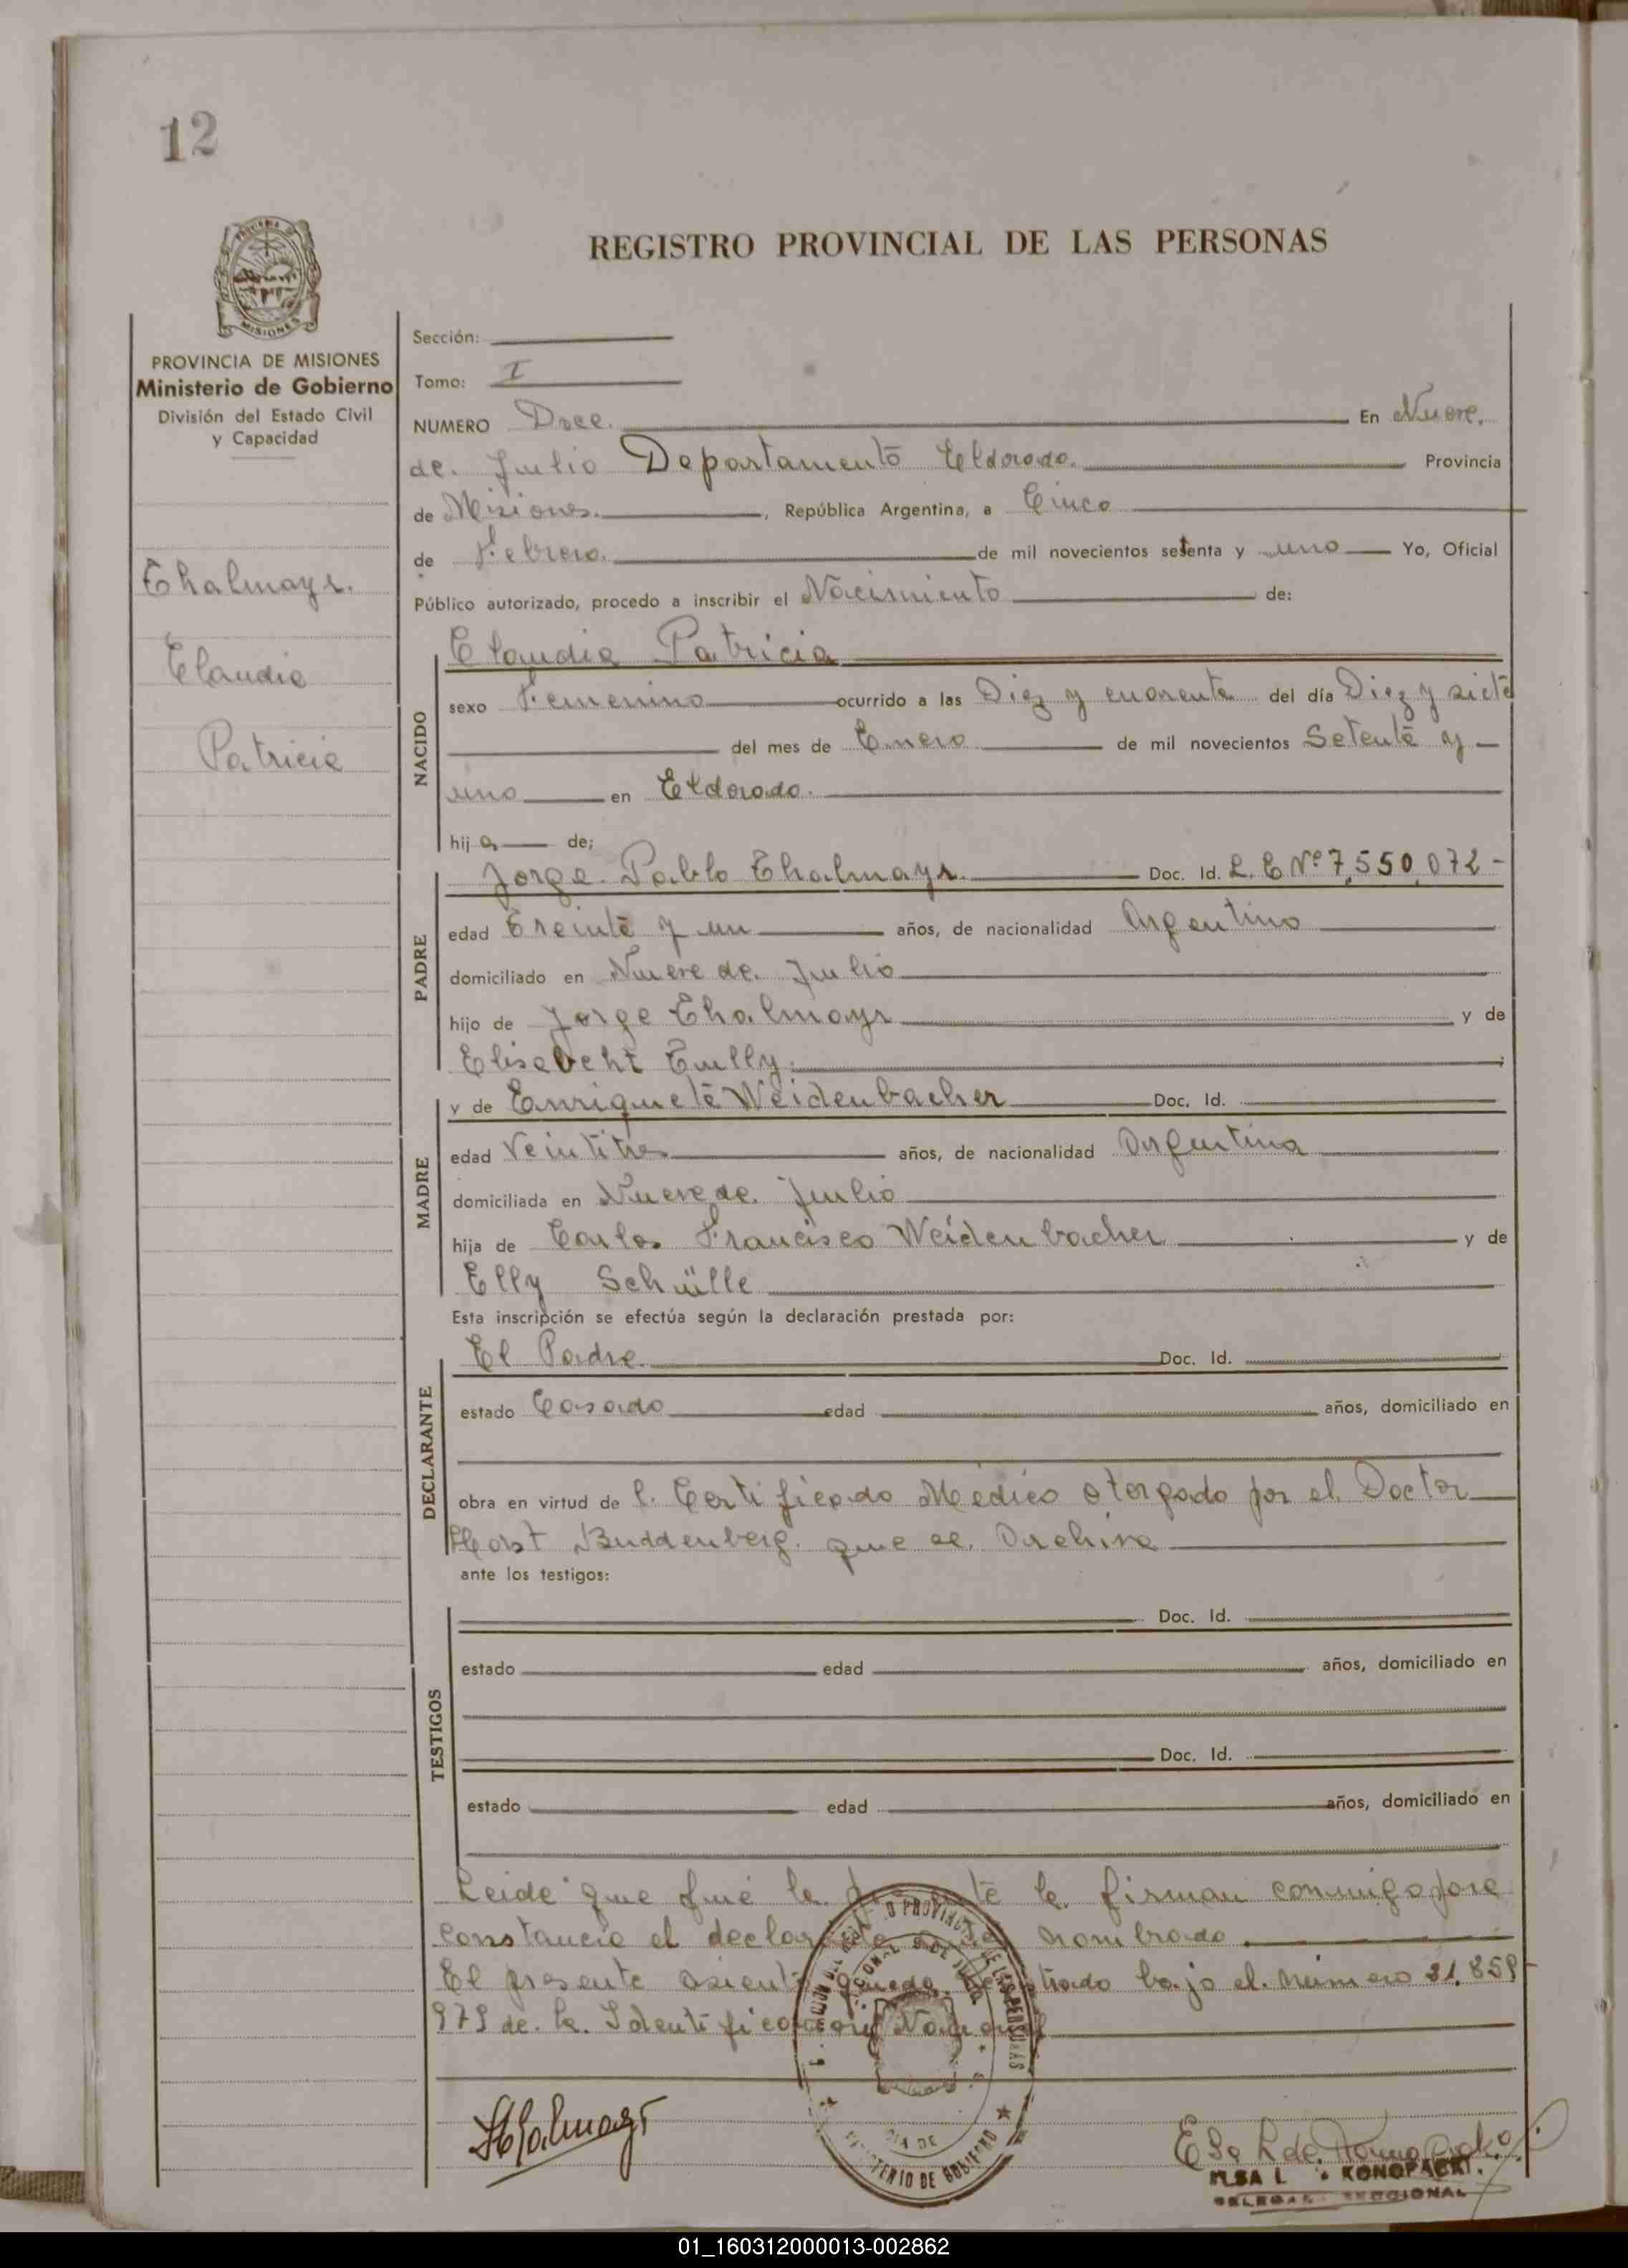 12
REGISTRO PROVINCIAL DE LAS PERSONAS
MISIONES
PROVINCIA DE MISIONES
Ministerio de Gobierno
División del Estado Civil
y Capacidad
Thalmayr.
Claudia
Patricia
Sección:
Tomo: I
NUMERO Doce. En Nueve
de. Julio Departamento Eldorado. Provincia
de Misiones. , República Argentina, a Cinco
de Febrero. de mil novecientos setenta y uno Yo, Oficial
Público autorizado, procedo a inscribir el Nacimiento de:
NACIDO
Claudia Patricia
sexo Femenino ocurrido a las Diez y cuarenta del día Diez y siete
del mes de Enero de mil novecientos Setenta y
uno en Eldorado.
hij a de;
PADRE
Jorge Pablo Thalmayr. Doc. Id. L. E Nº 7,550,072 -
edad Treinta y un años, de nacionalidad Argentino
domiciliado en Nueve de. Julio
hijo de Jorge Thalmayr y de
Elisabeht Tully. ;
MADRE
y de Enriqueta Weidenbacher Doc. Id.
edad Veintitres años, de nacionalidad Argentina
domiciliada en Nueve de. Julio
hija de Carlos Francisco Weidenbacher y de
Elly Schülle
Esta inscripción se efectúa según la declaración prestada por:
DECLARANTE
El Padre. Doc. Id.
estado Casado edad años, domiciliado en
obra en virtud de l. Certificado Médico otorgado por el Doctor
Horst Buddenberg. que se. Archiva
ante los testigos:
TESTIGOS
Doc. Id.
estado edad años, domiciliado en
Doc. Id.
estado edad años, domiciliado en
Leida que fué la la firman conmigo para
constancia el nombrado.
El presente asiento queda bajo el. número 21.859
979 de. la. Identificación
MINISTERIO DE GOBIERNO
Thalmayr
KONOPACKI.
01_160312000013-002862